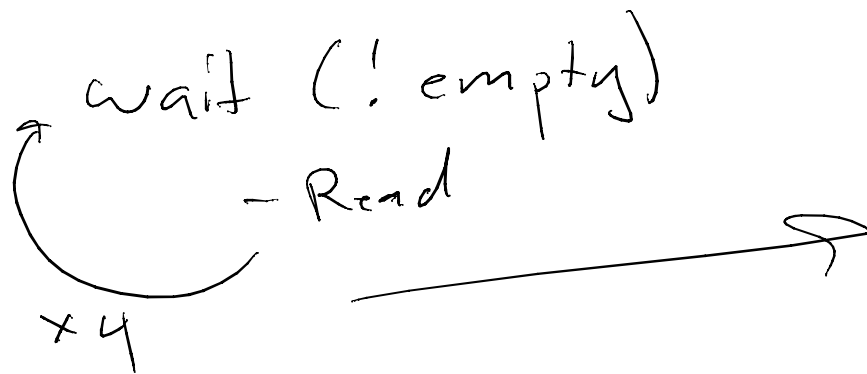 wait (! empty)
- Read
x 4